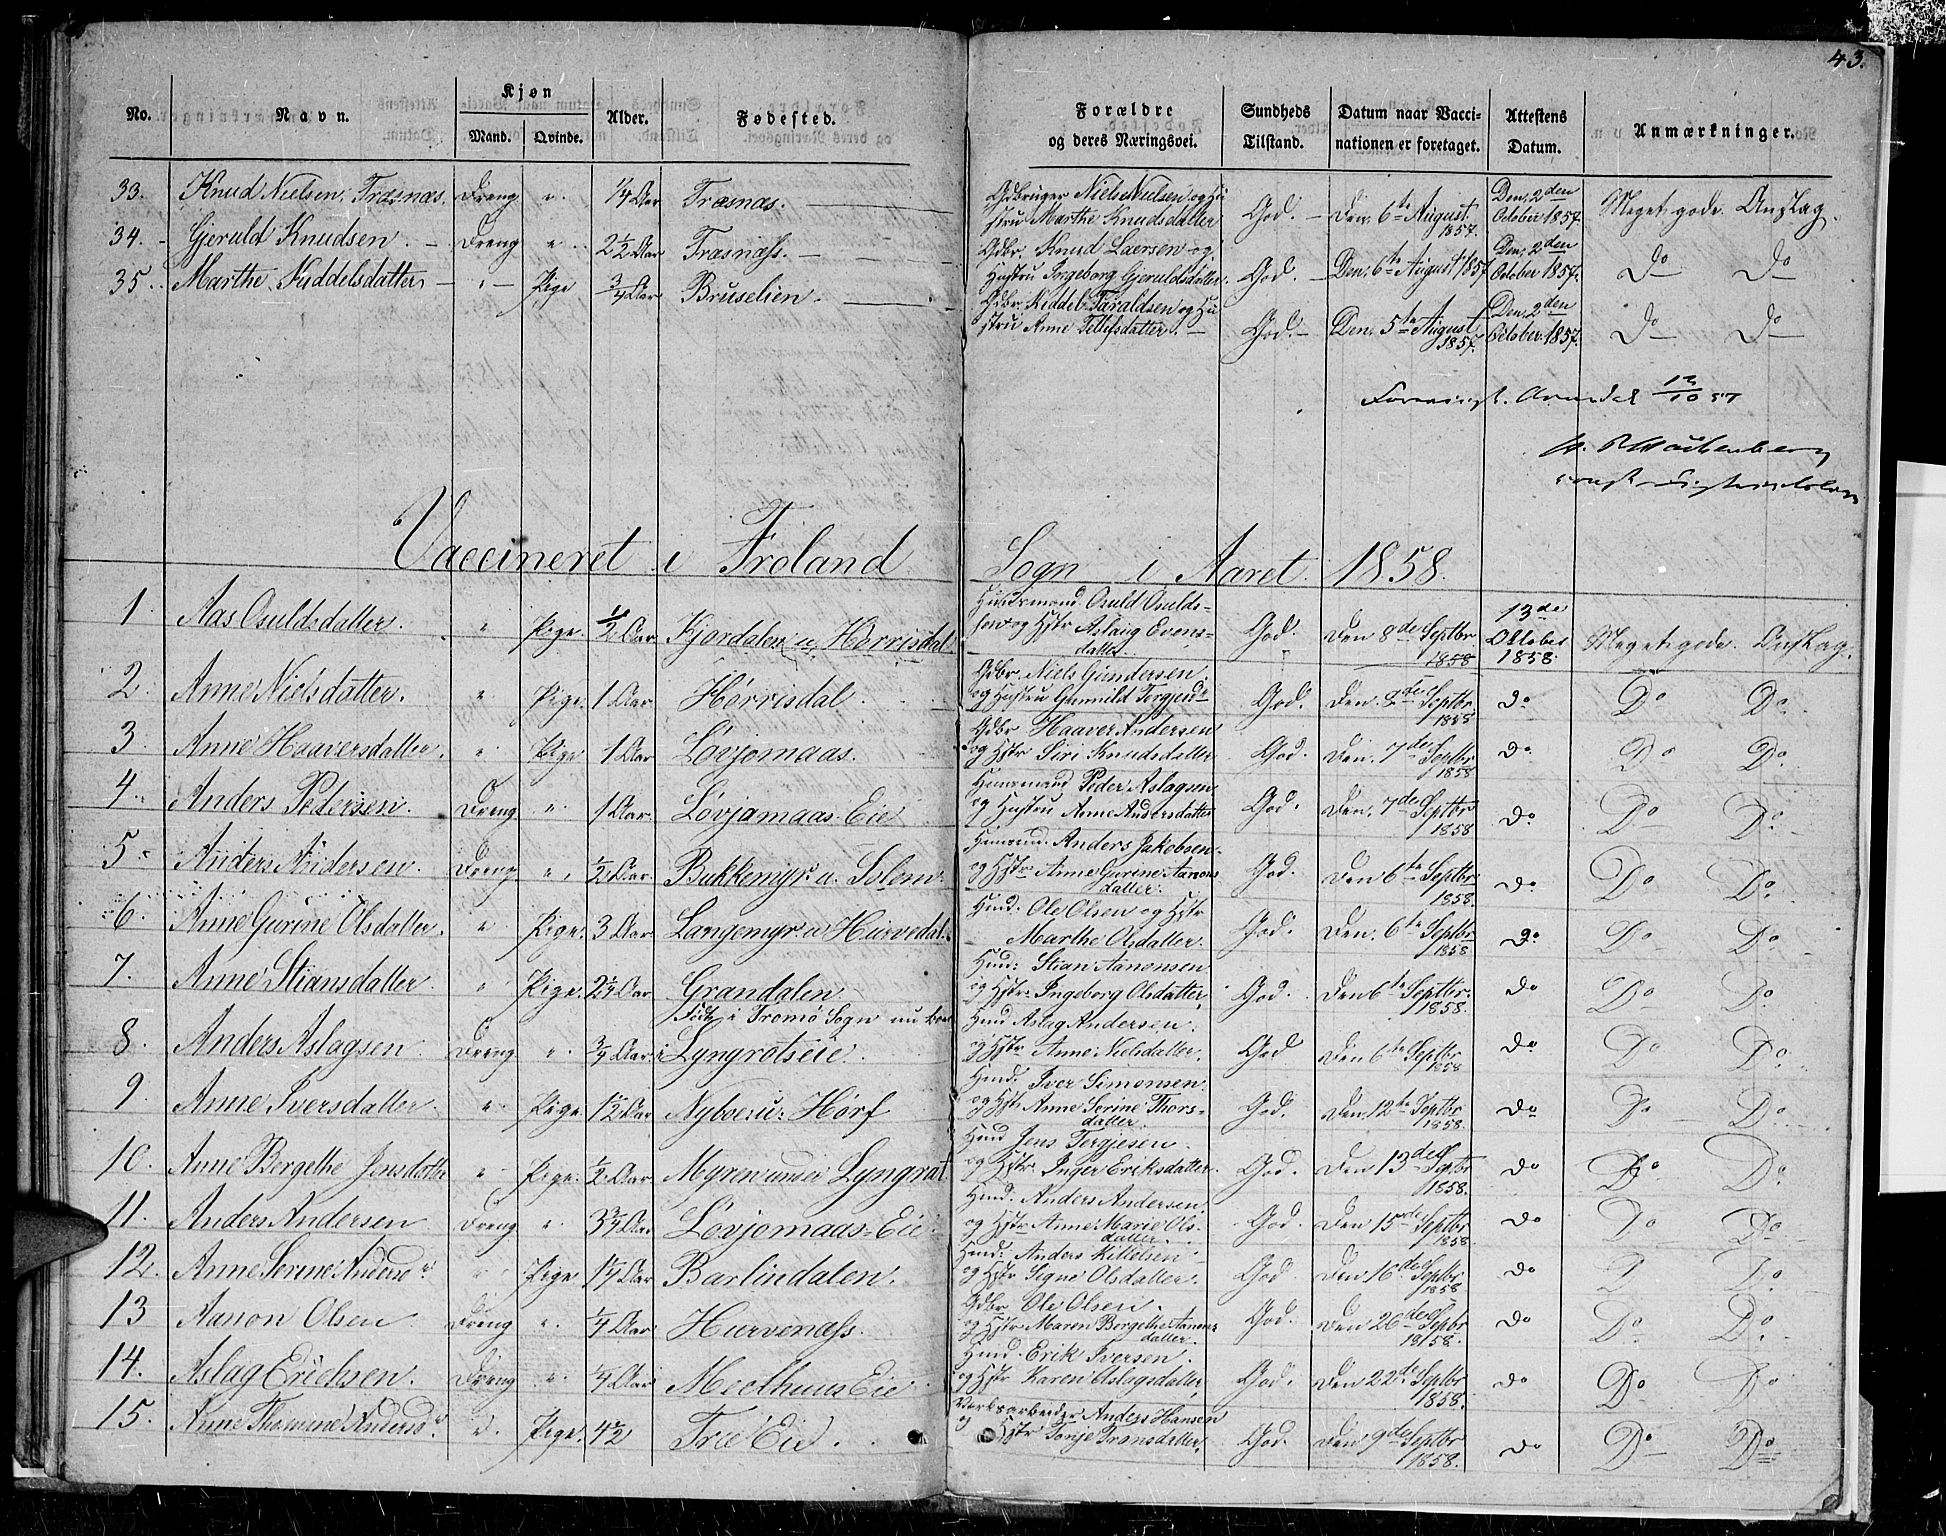 43.
No. Navn. Kjøn Mand. Qvinde. Alder. Fødested. Forældre og deres Næringsvei. Sundheds Tilstand. Datum naar Vaccinationen er foretaget. Attestens Datum. Anmærkninger.
33. Knud Nielsen, Træsnæs. Dreng " 1/4 Aar Træsnæs. Gdbruger Niels Nielsen og Hustru Marthe Knudsdatter God. Den 6te August 1857. Den 2den October 1857. Meget gode Anslag.
34. Gjeruld Knudsen. Dreng " 2 1/2 Aar Træsnæss. Gdbr. Knud Laersen og Hustru Ingeborg Gjeruldsdatter. God. Den 6te August 1857 Den 2den October 1857. Do Do
35. Marthe Kiddelsdatter " Pige 3/4 Aar Bruselien. Gdbr. Kiddel Taraldsen og Hustru Anne Tellefsdatter. God. Den 5te August 1857. Den 2den October 1857. Do Do
Arendal 13/10 57
Vaccineret i Froland Sogn i Aaret 1858.
1. Aas Osuldsdatter. " Pige. 1/2 Aar Fjordalen u. Hørrisdal Huusmand Osuld Osuldsen og Hstr Aslaug Evensdatter God. Den 8de Septbr 1858 13de Oktober 1858. Meget gode. Anslag.
2. Anne Nielsdatter. " Pige. 1 Aar Hørrisdal. Gdbr. Niels Gundersen og Hustru Gunnild Tergjesd. God. Den 8de Septbr 1858 Do Do Do
3. Anne Haaversdatter. " Pige 1 Aar Løvjomaas. Gdbr Haaver Andersen og Hstr Siri Knudsdatter God. Den 7de Septbr 1858 Do Do Do.
4. Anders Pedersen. Dreng " 1 Aar. Løvjomaas Eie Huusmand Peder Aslagsen og Hustru Anne Andersdatter God. Den 7de Septbr 1858 Do Do Do.
5. Anders Andersen. Dreng " 1/2 Aar. Bukkemyr u. Islem. Anders Jakobsen og Hstr Anne Gurine Aanonsdatter. God. Den 6te Septbr 1858. Do Do Do.
6. Anne Gurine Olsdatter. " Pige. 3 Aar. Langemyr u Hurvedal. Hmd. Ole Olsen og Hstr Marthe Olsdatter. God. Den 6te Septbr 1858 Do Do Do.
7. Anne Stiansdatter " Pige. 2 1/4 Aar Grandalen Hmd: Stian Aanonsen og Hstr. Ingeborg Olsdatter, God. Den 6te Septbr. 1858. Do Do Do.
8. Anders Aslagsen Dreng " 3/4 Aar Født i Tromø Sogn nu boer i Lyngrotseie. Hmd Aslag Andersen. og Hstr Anne Nielsdatter. God Den 6te Septbr 1858 Do Do Do.
9. Anne Iversdatter. " Pige. 1 1/2 Aar Nyboe u: Hørf Hmd. Iver Simonsen og Hstr Anne Serine Thorsdatter. God. Den 12te Septbr 1858. Do Do Do.
10. Anne Bergethe Jensdatter " Pige. 1/2 Aar. Myren under Lyngrot Hmd Jens Tergjesen. og Hstr. Inger Eriksdatter. God. Den 13de Septbr 1858. Do Do Do.
11. Anders Andersen Dreng " 3 3/4 Aar Løvjomaas=Eie. Hmd. Anders Andersen. og Hstr Anne Marie Olsdatter. God. Den 15de Septbr 1858. Do Do Do
12. Anne Serine Andersd. " Pige 1 1/4 Aar Barlindalen. Hmd: Anders Kittelsen og Hstr Signe Olsdatter. God. Den 16de Septbr 1858 Do Do Do
13 Aanon Olsen Dreng " 1/4 Aar. Hurvenæss. Gdbr Ole Olsen. og Hstr Maren Bergethe Aanonsdatter. God. Den 26de Septbr 1858. Do Do Do.
14. Aslag Ericksen. Dreng " 1/4 Aar Meelhuus Eie Hmd. Erik Iversen. og Hstr Karen Aslagsdatter, God. Den 22de Septbr 1858. Do Do Do.
15. Anne Thomine Andersd. " Pige. 4 1/2 Trie Eie. Værksarbeider Anders Hansen og Hstr Tonje Transdatter. God. Den 9de Septbr 1858. Do Do Do